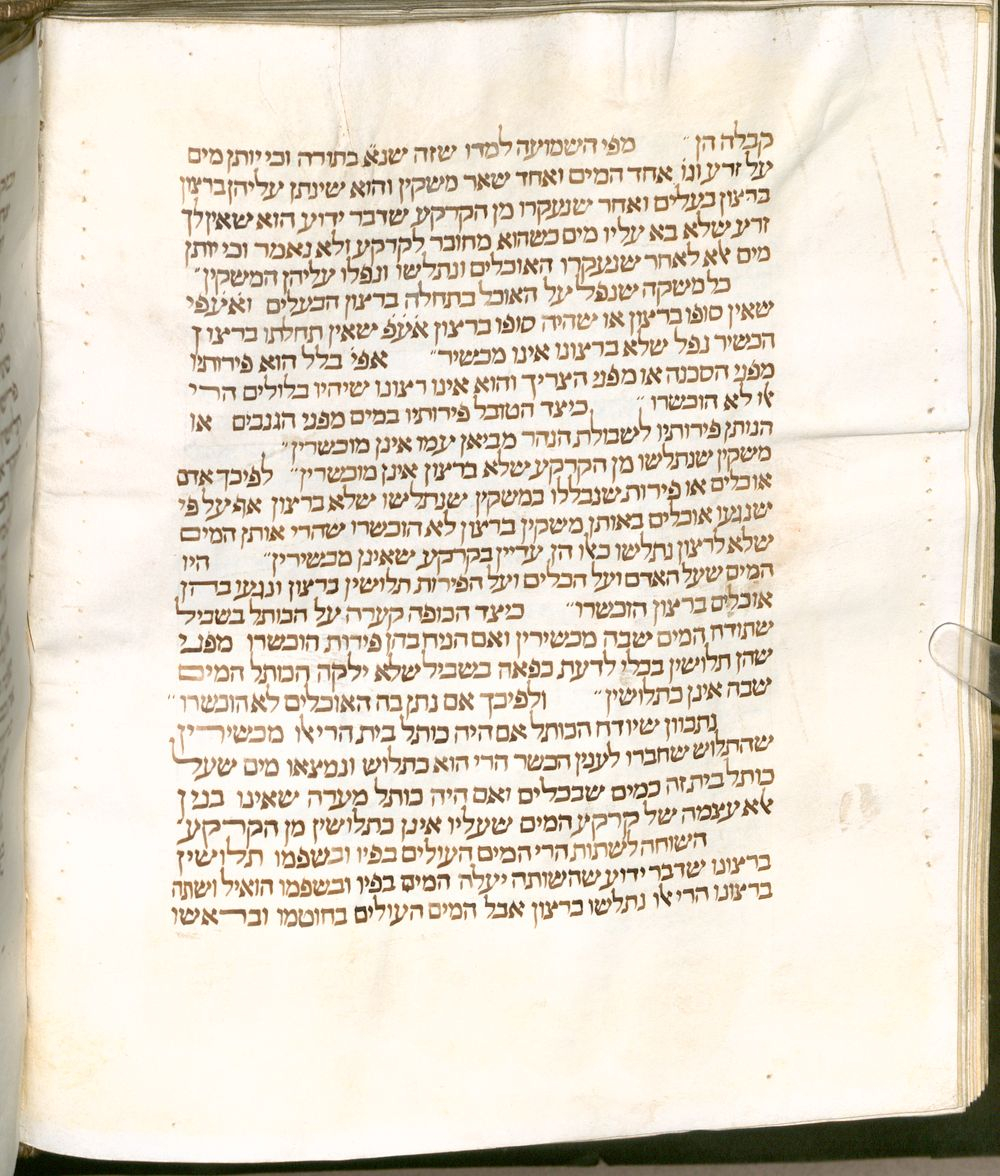 קבלה הן ״ מפי השמועה למדו שזה שנא׳ בתורה וכי יותן מים
על זרע ונו׳ אחד המים ואחד שאר משקין והוא שינתן עליהן ברצון
ברצון בעלים ואחר שנעקרו מן הקרקע שדבר ידוע הוא שאין לך
זרע שלא בא עליו מים כשהוא מחובר לקרקע ולא נאמר וכי יותן
מים אלא לאחר שנעקרו האוכלים ונתלשו ונפלו עליהן המשקין״
כל משקה שנפל על האוכל בתחלה ברצון הבעלים ואע׳פי
שאין סופו ברצון או שהיה סופו ברצון אע׳פ שאין תחלתו ברצון
הכשיר נפל שלא ברצונו אינו מכשיר״ אפי׳ בלל הוא פירותיו
מפני הסכנה או מפני הצריך והוא אינו רצונו שיהיו בלולים הרי
אלו לא הוכשרו ״ כיצד הטובל פירותיו במים מפני הגנבים או
הנותן פירותיו לשבולת הנהר מביאן עמו אינן מוכשרין״
משקין שנתלשו מן הקרקע שלא ברצון אינן מוכשרין״ לפיכך אדם
אוכלים או פירות שנבללו במשקין שנתלשו שלא ברצון אף על פי
שנגעו אוכלים באותן משקין ברצון לא הוכשרו שהרי אותן המים
שלא לרצון נתלשו כאלו הן עדיין בקרקע שאינן מכשירין״ היו
המים שעל האדם ועל הכלים ועל הפירות תלושין ברצון ונגעו בהן
אוכלים ברצון הוכשרו״ כיצד הכופה קערה על הכותל בשביל
שתודח המים שבה מכשירין ואם הניח בהן פירות הוכשרו מפני
שהן תלושין בכלי לדעת כפאה בשביל שלא ילקה הכותל המים
שבה אינן כתלושין״ ולפיכך אם נתן בה האוכלים לא הוכשרו״
נתכוון שיודח הכותל אם היה כותל בית הרי אלו מכשירין
שהתלוש שחברו לענין הכשר הרי הוא כתלוש ונמצאו מים שעל
כותל בית זה כמים שבכלים ואם היה כותל מערה שאינו בנין
אלא עצמה של קרקע המים שעליו אינן כתלושין מן הקרקע
השוחה לשתות הרי המים העולים בפיו ובשפמו תלושין
ברצונו שדבר ידוע שהשותה יעלה המים בפיו ובשפמו הואיל ושתה
ברצונו הרי אלו נתלשו ברצון אבל המים העולים בחוטמו ובראשו